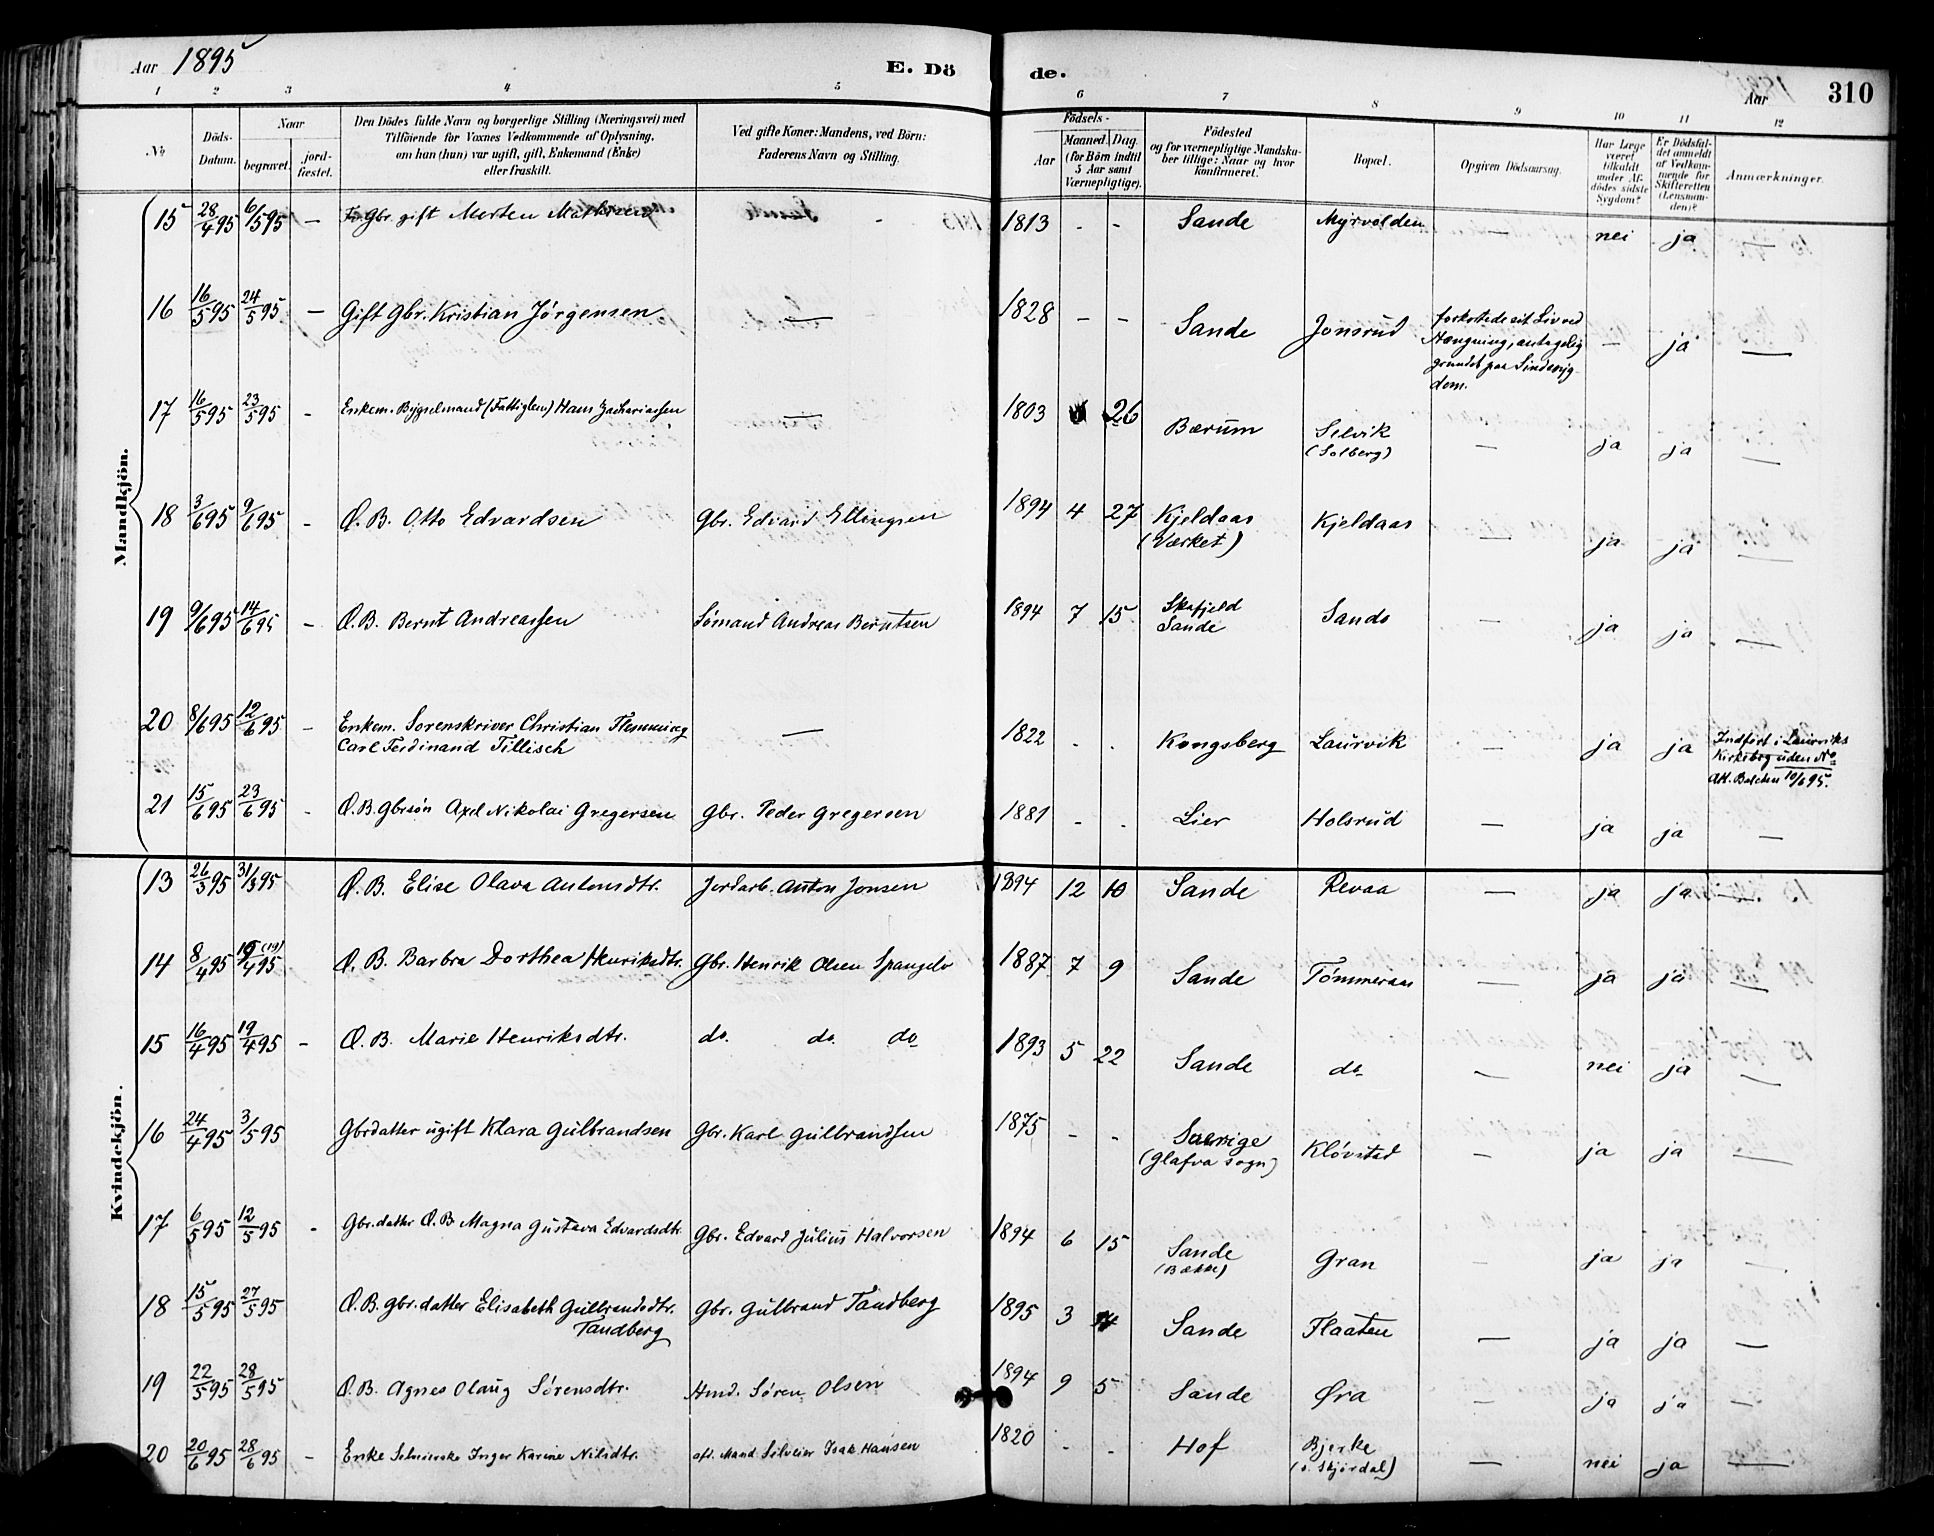 Aar 1895 E. Dö de. Aar 310
1 2 3 4 5 6 7 8 9 10 11 12
No
Döds-Datum.
Naar
begravet.
jord-fæstet.
Den Dödes fulde Navn og borgerlige Stilling (Næringsvei) med
Tilföiende for Voxnes Vedkommende af Oplysning,
om han (hun) var ugift, gift, Enkemand (Enke)
eller fraskilt.
Ved gifte Koner: Mandens, ved Börn:
Faderens Navn og Stilling.
Födsels-
Aar
Maaned. Dag.
(for Börn indtil
5 Aar samt
Værnepligtige).
Födested
og for værnepligtige Mandska-
ber tillige: Naar og hvor
konfirmeret.
Bopæl.
Opgiven Dödsaarsag.
Har Læge
været
tilkaldt
under Af-
dödes sidste
Sygdom?
Er Dödsfal-
det anmeldt
af Vedkom-
mende for
Skifteretten
(Lensman-
den)?
Anmærkninger.
Mandkjön.
15 28/4 95 6/5 95 — Gbr. gift Morten Mathisen 1813 - - Sande Myrvolden — nei ja —
16 16/5 95 24/5 95 — Gift Gbr. Kristian Jörgensen — 1828 - - Sande Jonsrud forkortede sit Liv ved
Hængning, antagelig
grundet paa Sindssyg-
dom. — ja —
17 16/5 95 23/5 95 - Enkem. Bygselmand (Fattiglem) Hans Zachariassen — 1803 26 Bærum Selvik
(Solberg) — ja ja —
18 3/6 95 9/6 95 - Æ. B. Otto Edvardsen Gbr. Edvard Ellingsen 1894 4 27 Kjeldaas
(Værket) Kjeldaas — ja ja —
19 9/6 95 14/6 95 - Æ. B. Bernt Andreassen Sömand Andreas Berntsen 1894 7 15 Skafjeld
Sande Sando — ja ja —
20 8/6 95 12/6 95 - Enkem. Sorenskriver Christian Flemming
Carl Ferdinand Tillisch — 1822 - - Kongsberg Laurvik — ja ja Indfört i Laurviks
Kirkebog uden No
Att. Balchen 10/6 95.
21 15/6 95 23/6 95 - Æ. B. Gbrsön Axel Nikolai Gregersen Gbr. Peder Gregersen 1881 - - Lier Holsrud — ja ja —
Kvindekjön.
13 26/3 95 31/3 95 Æ. B. Elise Olava Antonsdtr. Jordarb. Anton Jonsen 1894 12 10 Sande Revaa — ja ja —
14 8/4 95 19/4 95 (19) Æ. B. Barbra Dorthea Henriksdtr. Gbr. Henrik Olsen Spangelo 1887 7 9 Sande Tömmeraas — ja ja —
15 16/4 95 19/4 95 - Æ. B. Marie Henriksdtr. do. do. do 1893 5 22 Sande do — nei ja —
16 24/4 95 3/5 95 Gbrdatter ugift Klara Gulbrandsen Gbr. Karl Gulbrandsen 1875 - - Sverige
(Glafva Sogn) Klövstad — ja ja —
17 6/5 95 12/5 95 - Gbr. datter Æ. B. Magna Gustava Edvardsdtr. Gbr. Edvard Julius Halvorsen 1894 6 15 Sande
(Bække) Gran - ja ja -
18 15/5 95 27/5 95 Æ. B. Gbr. datter Elisabeth Gulbrandsdtr.
Tandberg Gbr. Gulbrand Tandberg 1895 3 Sande Flaaten — ja ja —
19 22/5 95 28/5 95 Æ. B. Agnes Olaug Sörensdtr. Hmd. Sören Olsen 1894 9 5 Sande Øra — ja ja —
20 20/6 95 28/6 95 - Enke Inger Karine Nilsdtr. Isak Hansen 1820 - - Hof Bjerke
(ö. Skjördal) — nei ja —